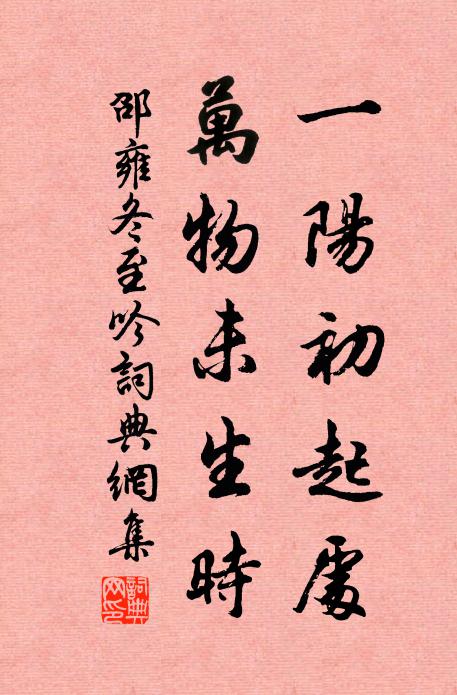 一陽初起處
萬物未生時
邵雍冬至吟詞典網集
詞典網印